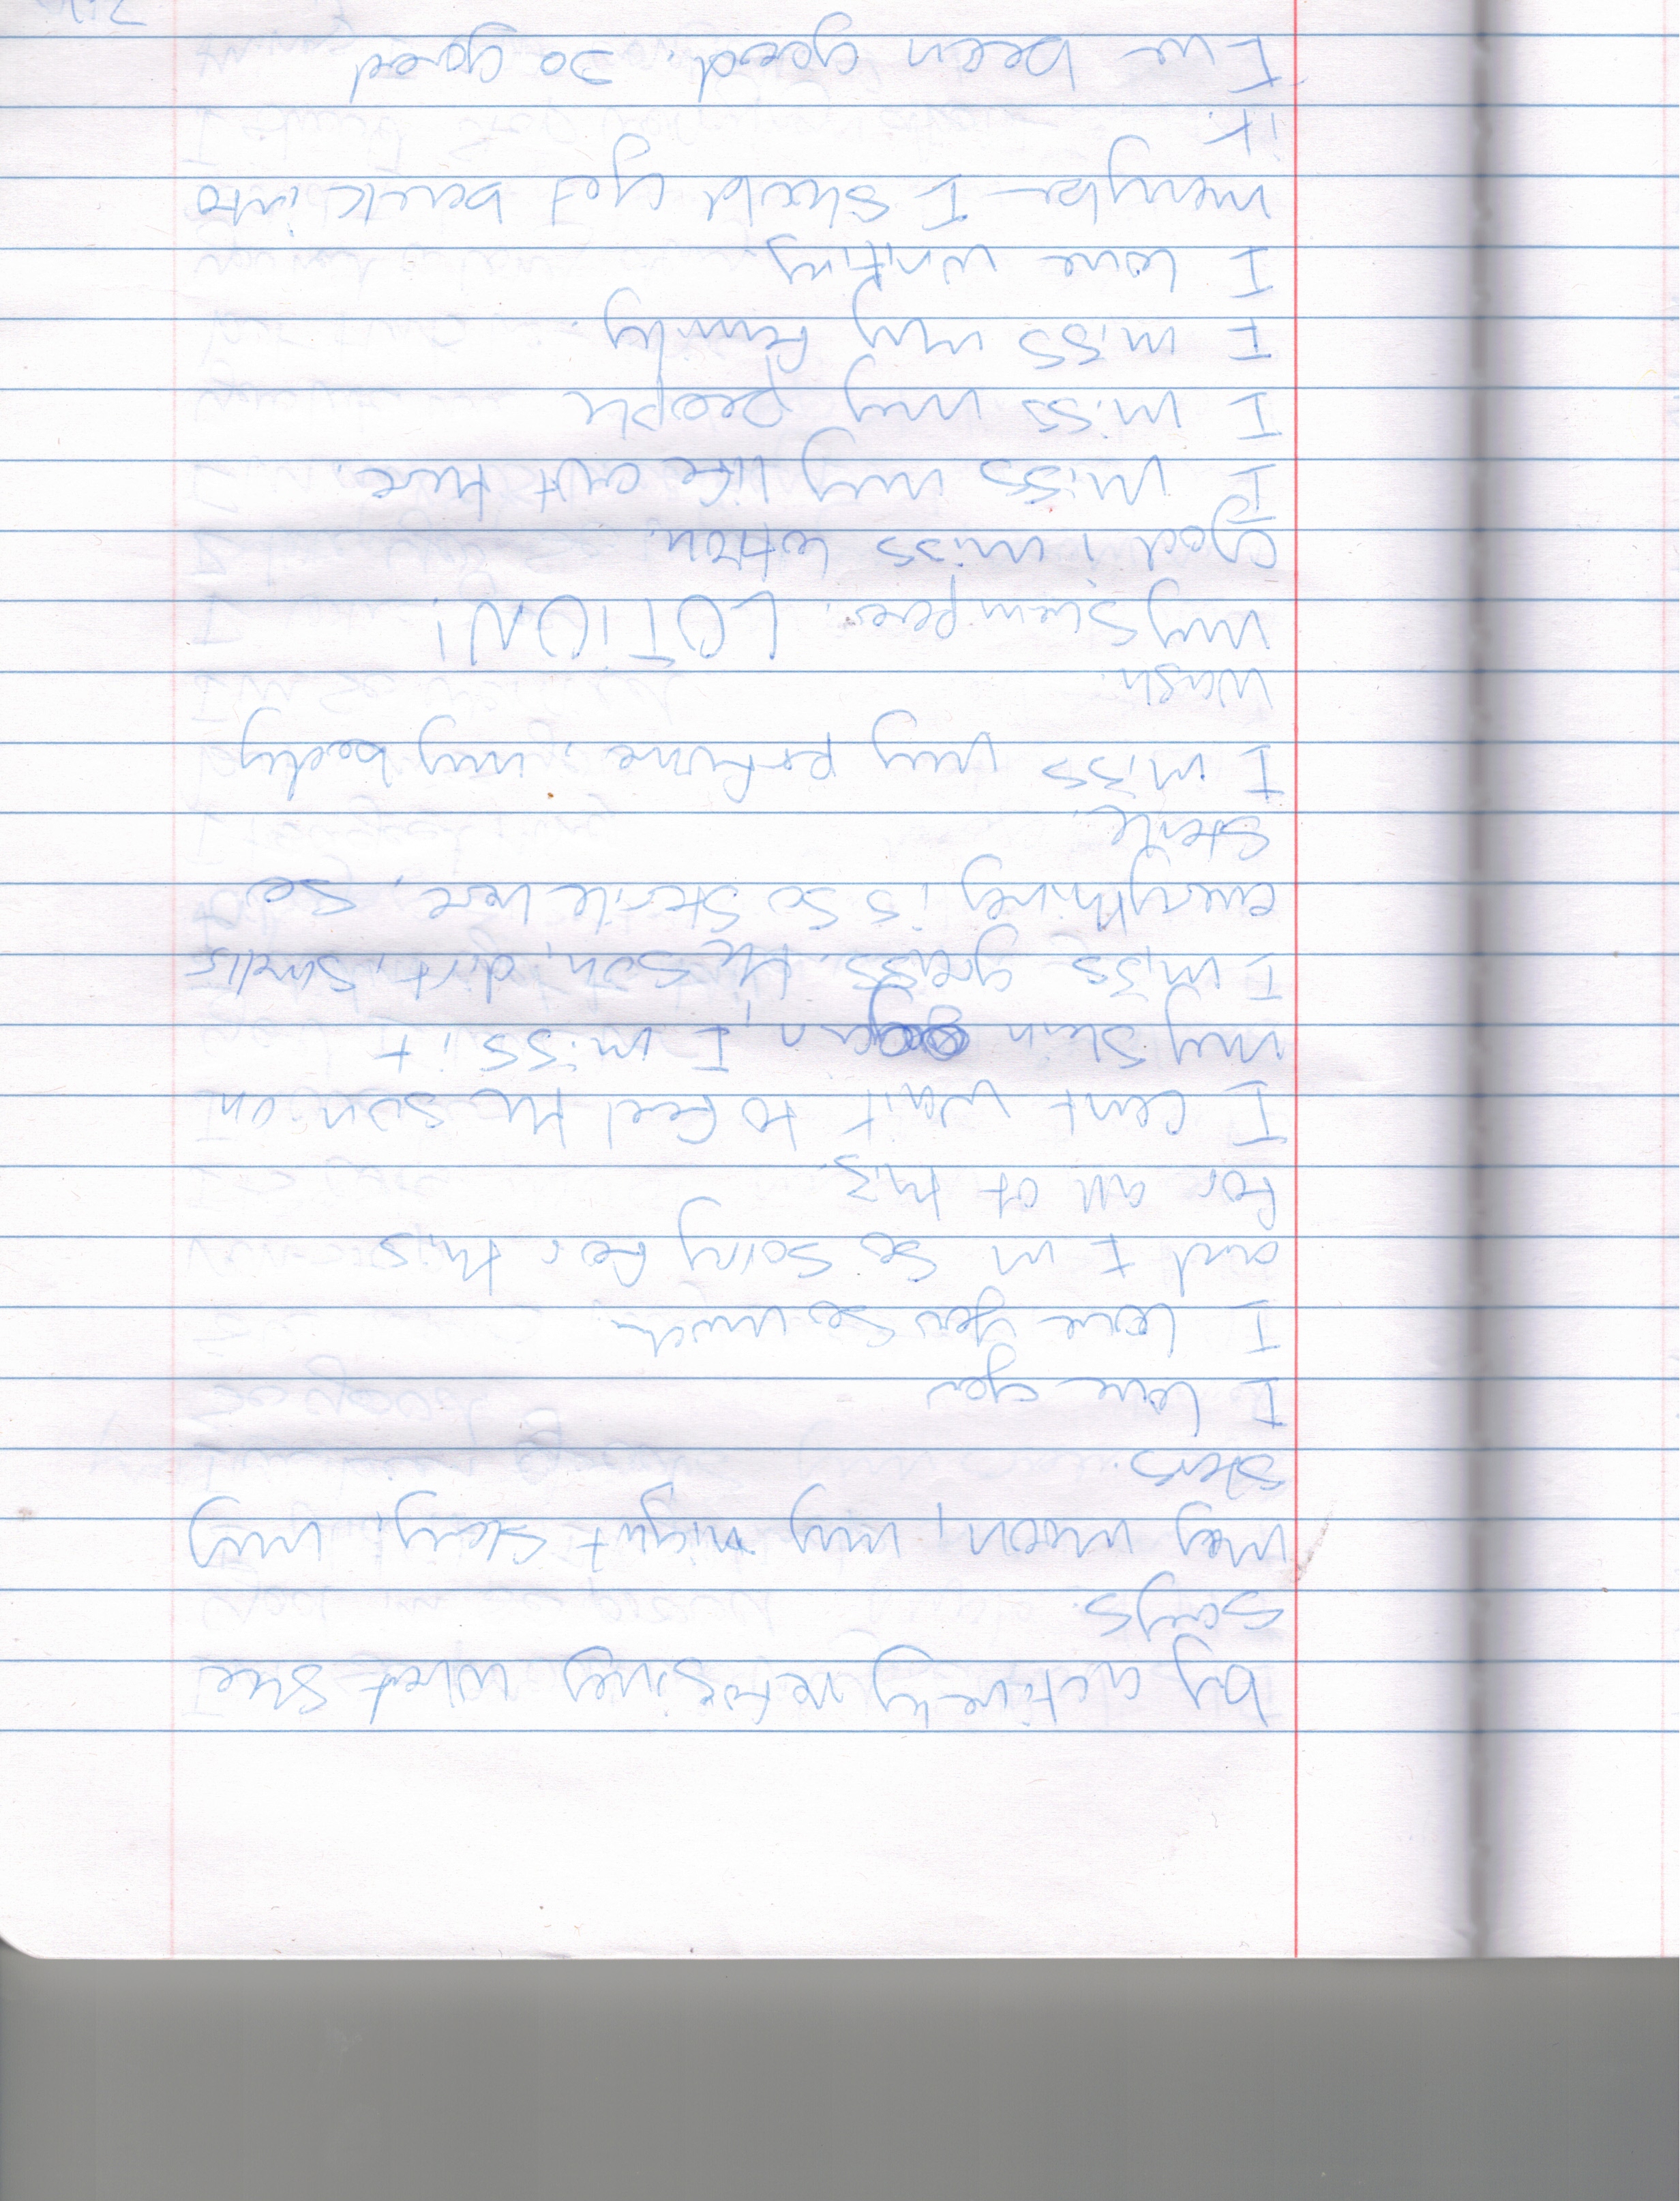 by actively refusing what she
says.
my moon, my night sky, my
stars.
I love you
I love you so much.
and I'm so sorry for this
for all of this.
I cant wait to feel the sun on
my skin again, I miss it
I miss grass, the sun, dirt, smells
everything is so sterile here, so
sterile.
I miss my perfume, my body
wash.
my shampoo. LOTION!
God i miss lotion.
I miss my life out there.
I miss my people
I miss my family.
I love writing
maybe I should get back into
it.
I've been good. so good